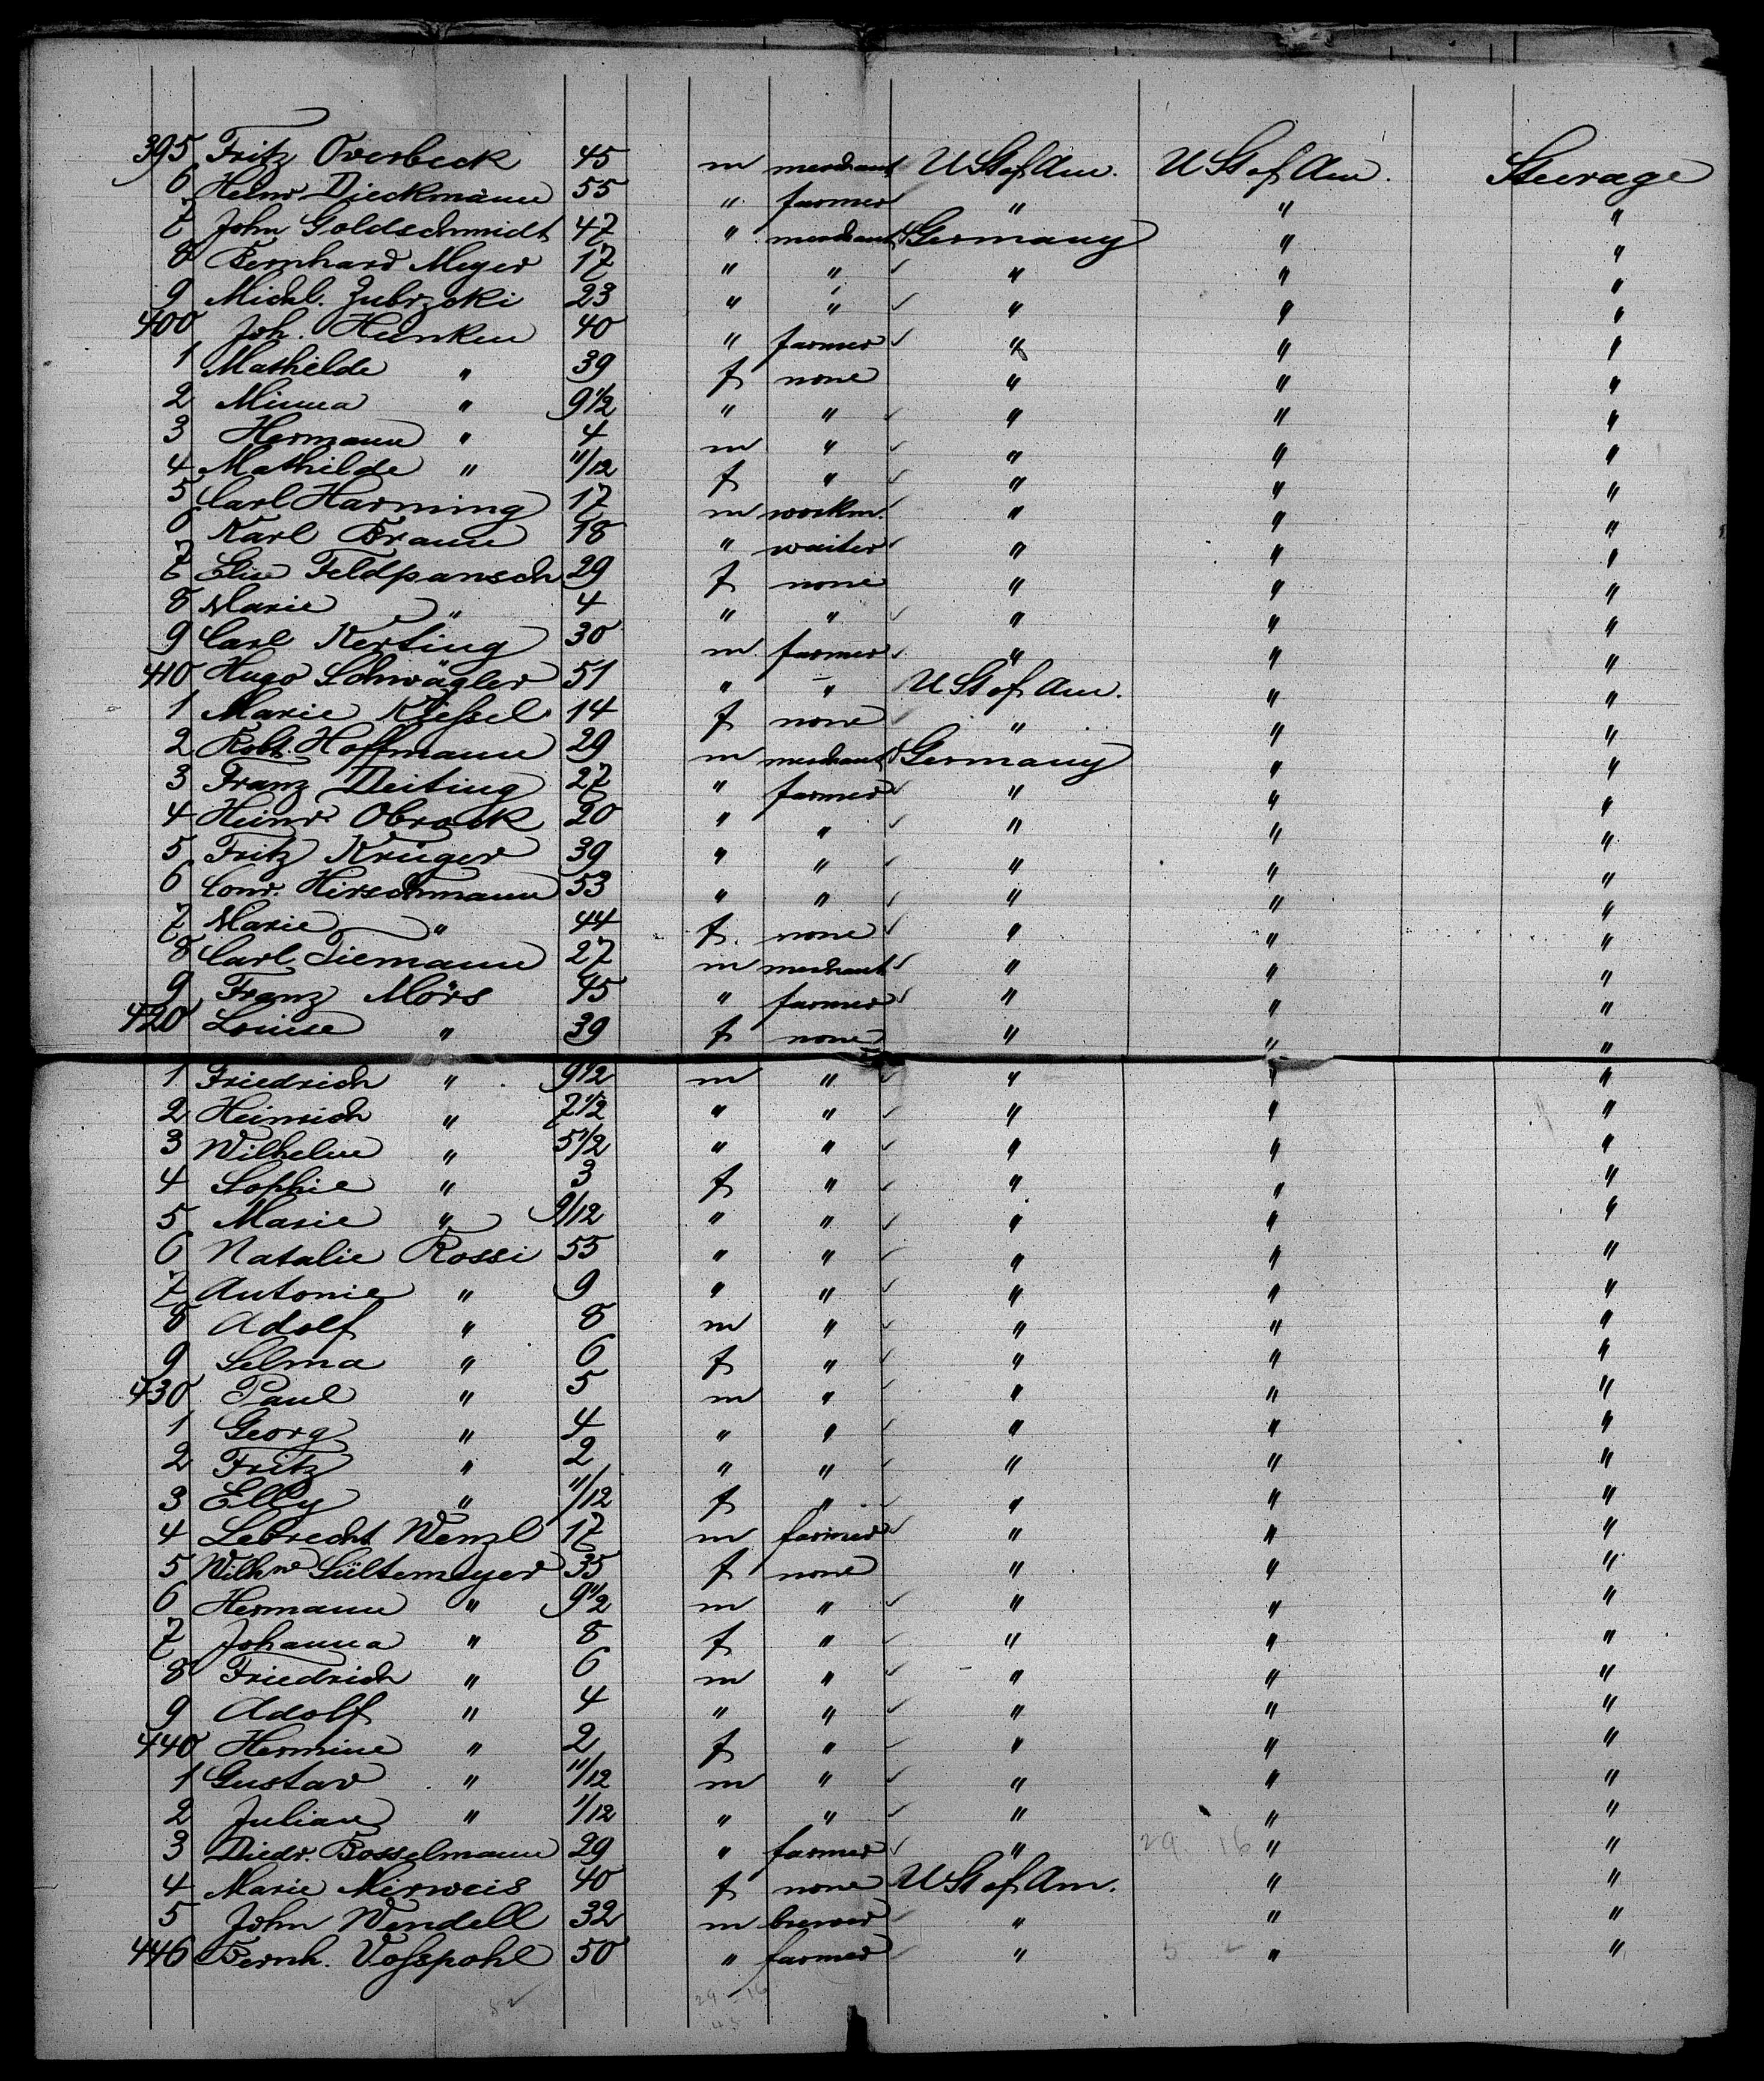 395 Fritz Overbeck 45 m merchant U St of Am. U St of Am. Steerage
6 Heinr. Dieckmann 55 " farmer " " "
7 John Goldschmidt 47 " merchant Germany " "
8 Bernhard Meyer 17 " " " " "
9 Michl. Zubrzcki 23 " " " " "
400 Joh. Heinken 40 " farmer " " "
1 Mathilde " 39 f none " " "
2 Minna " 9 1/2 " " " " "
3 Hermann " 4 m " " " "
4 Mathilde " 11/12 f " " " "
5 Carl Harming 17 m workm. " " "
6 Karl Braun 18 " waiter " " "
7 Elise Feldpansch 29 f none " " "
8 Marie " 4 " " " " "
9 Carl Kerting 30 m farmer " " "
410 Hugo Schwägler 51 " " U St of Am. " "
1 Marie Kießel 14 f none " " "
2 Robt. Hoffmann 29 m merchant Germany " "
3 Franz Deiting 27 " farmer " " "
4 Heinr. Obrock 20 " " " " "
5 Fritz Krüger 39 " " " " "
6 Conr. Hirschmann 53 " " " " "
7 Marie " 44 f. none " " "
8 Carl Tiemann 27 m merchant " " "
9 Franz Mörs 45 " farmer " " "
420 Louise " 39 f none " " "
1 Friedrich " 9 1/2 m " " " "
2 Heinrich " 7 1/2 " " " " "
3 Wilhelm " 5 1/2 " " " " "
4 Sophie " 3 f " " " "
5 Marie " 9/12 " " " " "
6 Natalie Rossi 55 " " " " "
7 Antonie " 9 " " " " "
8 Adolf " 8 m " " " "
9 Selma " 6 f " " " "
430 Paul " 5 m " " " "
1 Georg " 4 " " " " "
2 Fritz " 2 " " " " "
3 Elly " 11/12 f " " " "
4 Lebrecht Wenzl 17 m farmer " " "
5 Wilhne Sültemeyer 35 f none " " "
6 Hermann " 9 1/2 m " " " "
7 Johanna " 8 f " " " "
8 Friedrich " 6 m " " " "
9 Adolf " 4 " " " " "
440 Hermine " 2 f " " " "
1 Gustav " 11/12 m " " " "
2 Julian " 1/12 " " " " "
3 Diedr. Bosselmann 29 " farmer " 29. 16 " "
4 Marie Mirweis 40 f none U St of Am. " "
5 John Wendell 32 m brewer " " "
446 Bernh. Voßpohl 50 " farmer " " "
29 - 16